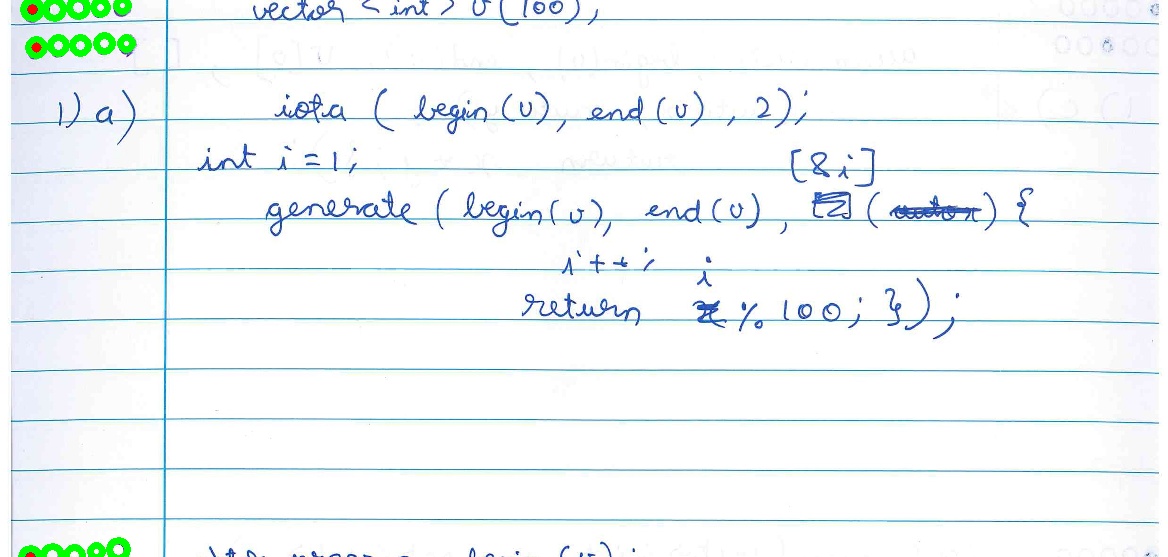 vector <int> v(100);
1) a) iota ( begin (v), end (v) , 2);
int i = 1; [&i]
generate ( begin (v), end (v), ( ) {
i++; i
return % 100; });